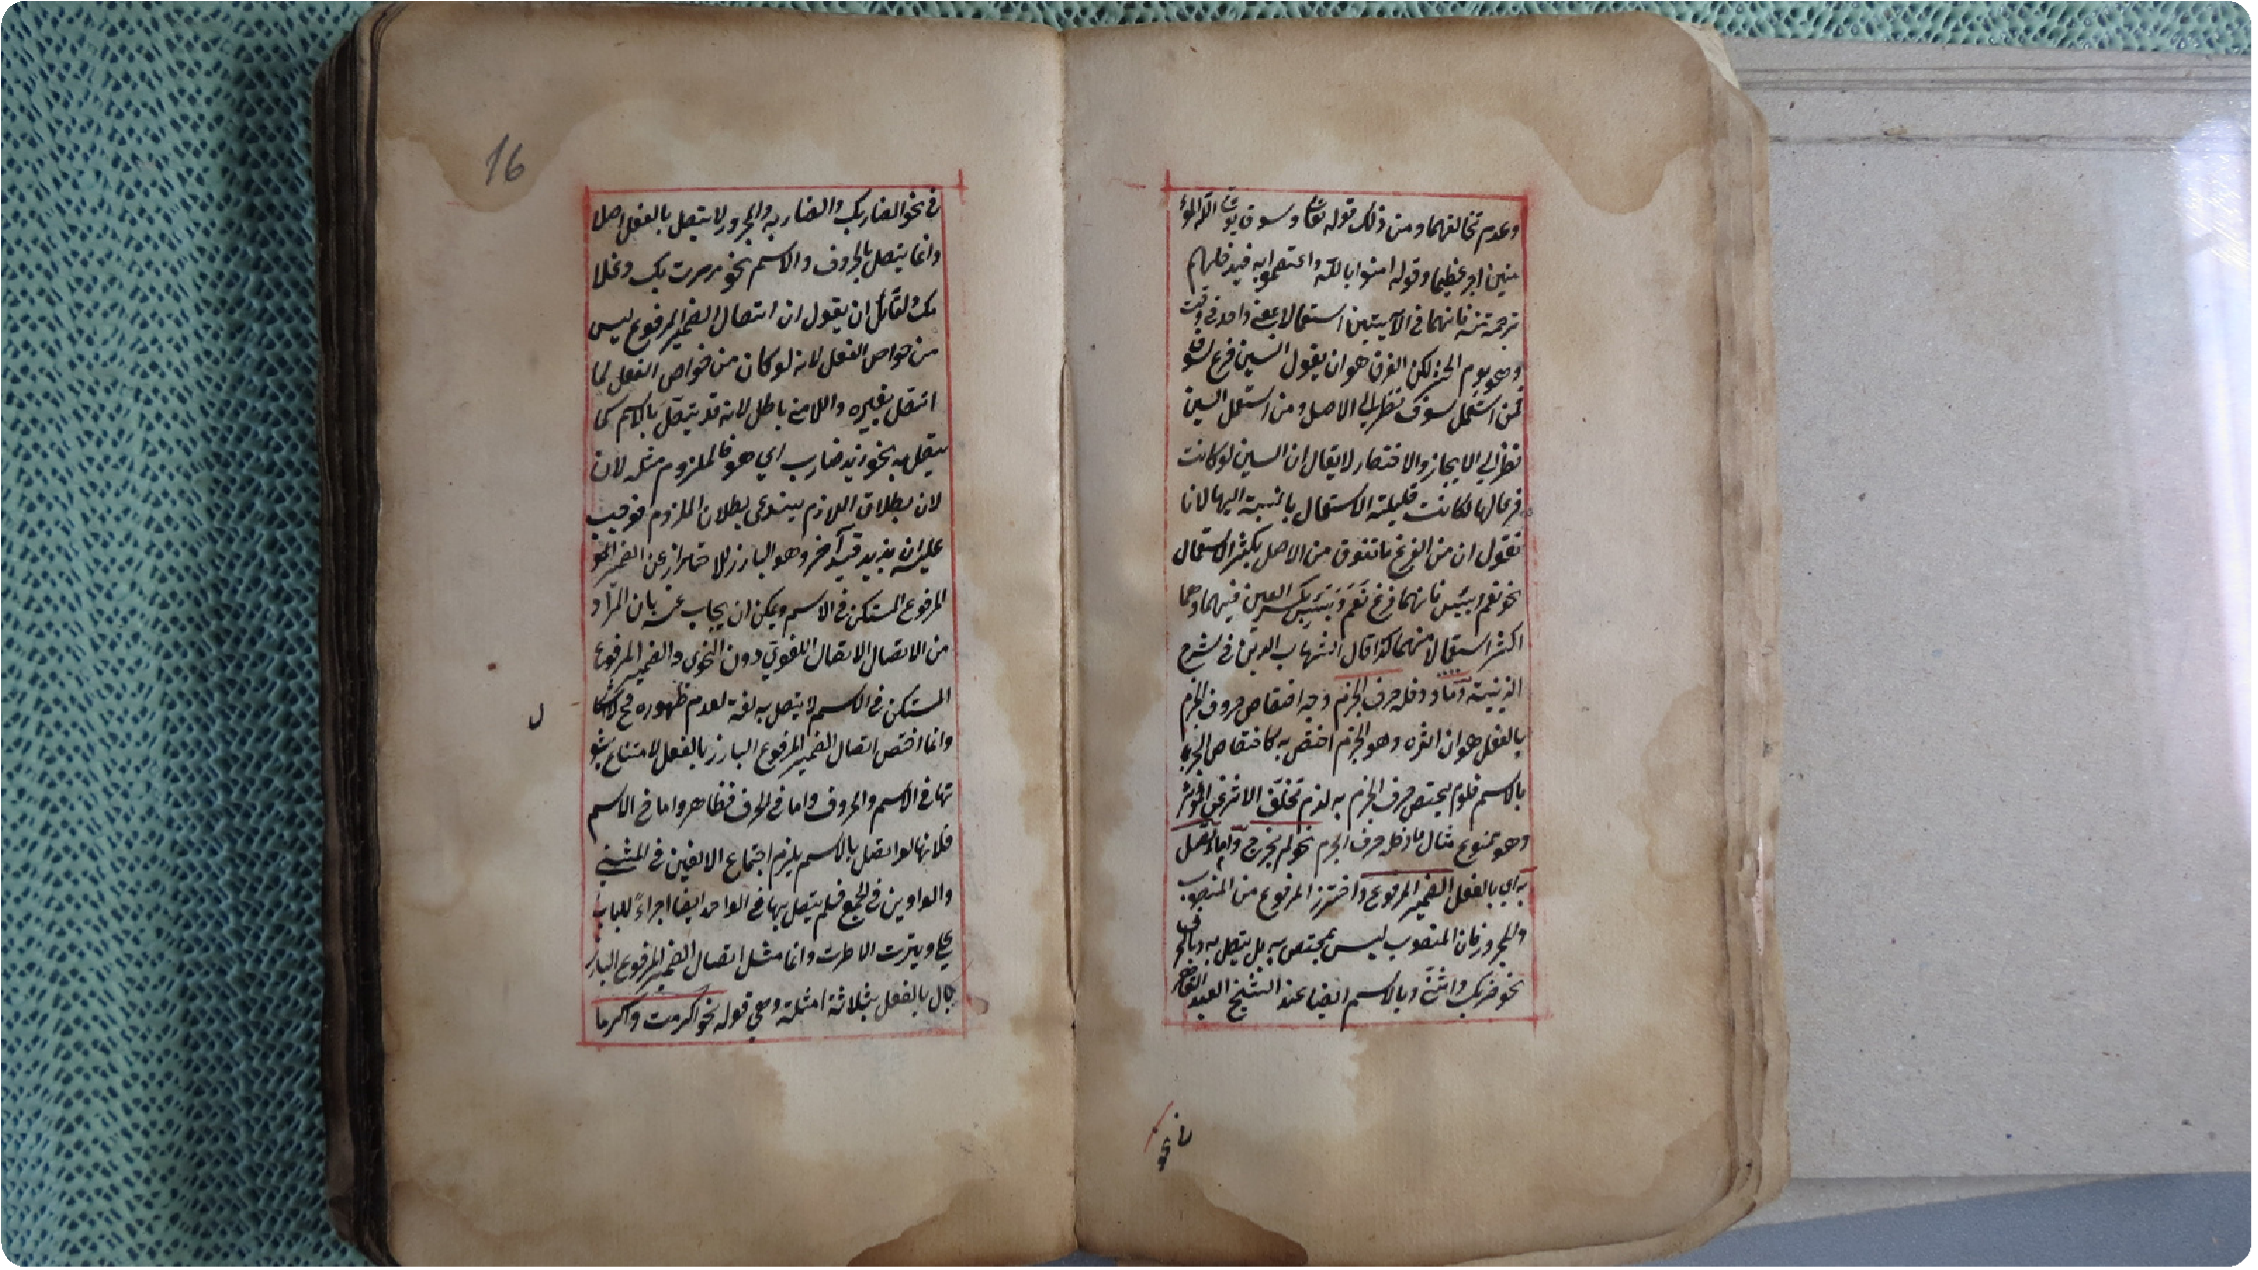 وعدم تخالفهما ومن ذلك قوله تعا وسوف يؤت الله المؤ
منين اجرا عظيما وقوله امنوا بالله واعتصموا به فسيدخلهم
فانهما في الآيتين استعمالا بمعنى واحد في وقت
وهو يوم لكن الفرق هو ان يقول السين فرع لسوف
فمن استعمل سوف نظر الى الاصل ومن استعمل السين
نظر الى الايجاز والاختصار لا يقال ان السين لو كانت
فرعا لها لكانت قليلة الاستعمال بالنسبة اليها لانا
نقول ان من الفرع ما تفوق من الاصل بكثر الاستعمال
نحو نعم وبئس فانهما فرع نعم وبئس بكسر العين فيهما وهما
اكثر استعمالا منهما كذا قال الشهاب الدين في شرح
ودخله حرف الجزم وجه اختصاص حروف الجزم
بالفعل هو ان اثره وهو الجزم اختص به كاختصاص الجر
بالاسم فلو لم يختص حرف الجزم به لزم تخلف الاثر عن المؤثر
وهو ممنوع مثال ما دخله حرف الجزم نحو لم يخرج ولما اتصل
به اي بالفعل الضمير المرفوع واحترز المرفوع من المنصوب
والمجرور فان المنصوب ليس بمختص به بل يتصل به وبالحرف
نحو ضربك وانني وبالاسم ايضا عند الشيخ العبد القاهر
في نحو
16
في نحو الضاربك والضاربه والمجرور لا يتصل بالفعل اصلا
وانما يتصل بالحروف والاسم نحو مررت بك وغلا
مك ولقائل ان يقول ان اتصال الضمير المرفوع ليس
من خواص الفعل لانه لو كان من خواص الفعل لما
اتصل بغيره واللازم باطل لانه قد يتصل بالاسم كما
يتصل به نحو زيد ضارب اي هو فالملزوم مثله لان
لان بطلان اللازم يستدعى بطلان الملزوم فوجب
عليه ان يزيد قيدا آخر وهو البارز للاحتراز عن الضمير
المرفوع المستكن في الاسم ويمكن ان يجاب عنه بان المراد
من الاتصال الاتصال اللغوي دون النحوي والضمير المرفوع
المستكن في الاسم لا يتصل به لغة لعدم ظهوره فح لا اشكا
ل
وانما اختص اتصال الضمير المرفوع البارز بالفعل لامتناع ثبو
تها في الاسم والحروف واما في الحرف فظاهر واما في الاسم
فلانها لو اتصل بالاسم يلزم اجتماع الالفين في المثنى
والواوين في الجمع فلم يتصل بها في الواحد ايضا اجراء للباب
على وتيرت الاطرت وانما مثل اتصال الضمير المرفوع البارز
بال بالفعل بثلاثة امثلة وهي قوله نحو اكرمت واكرما